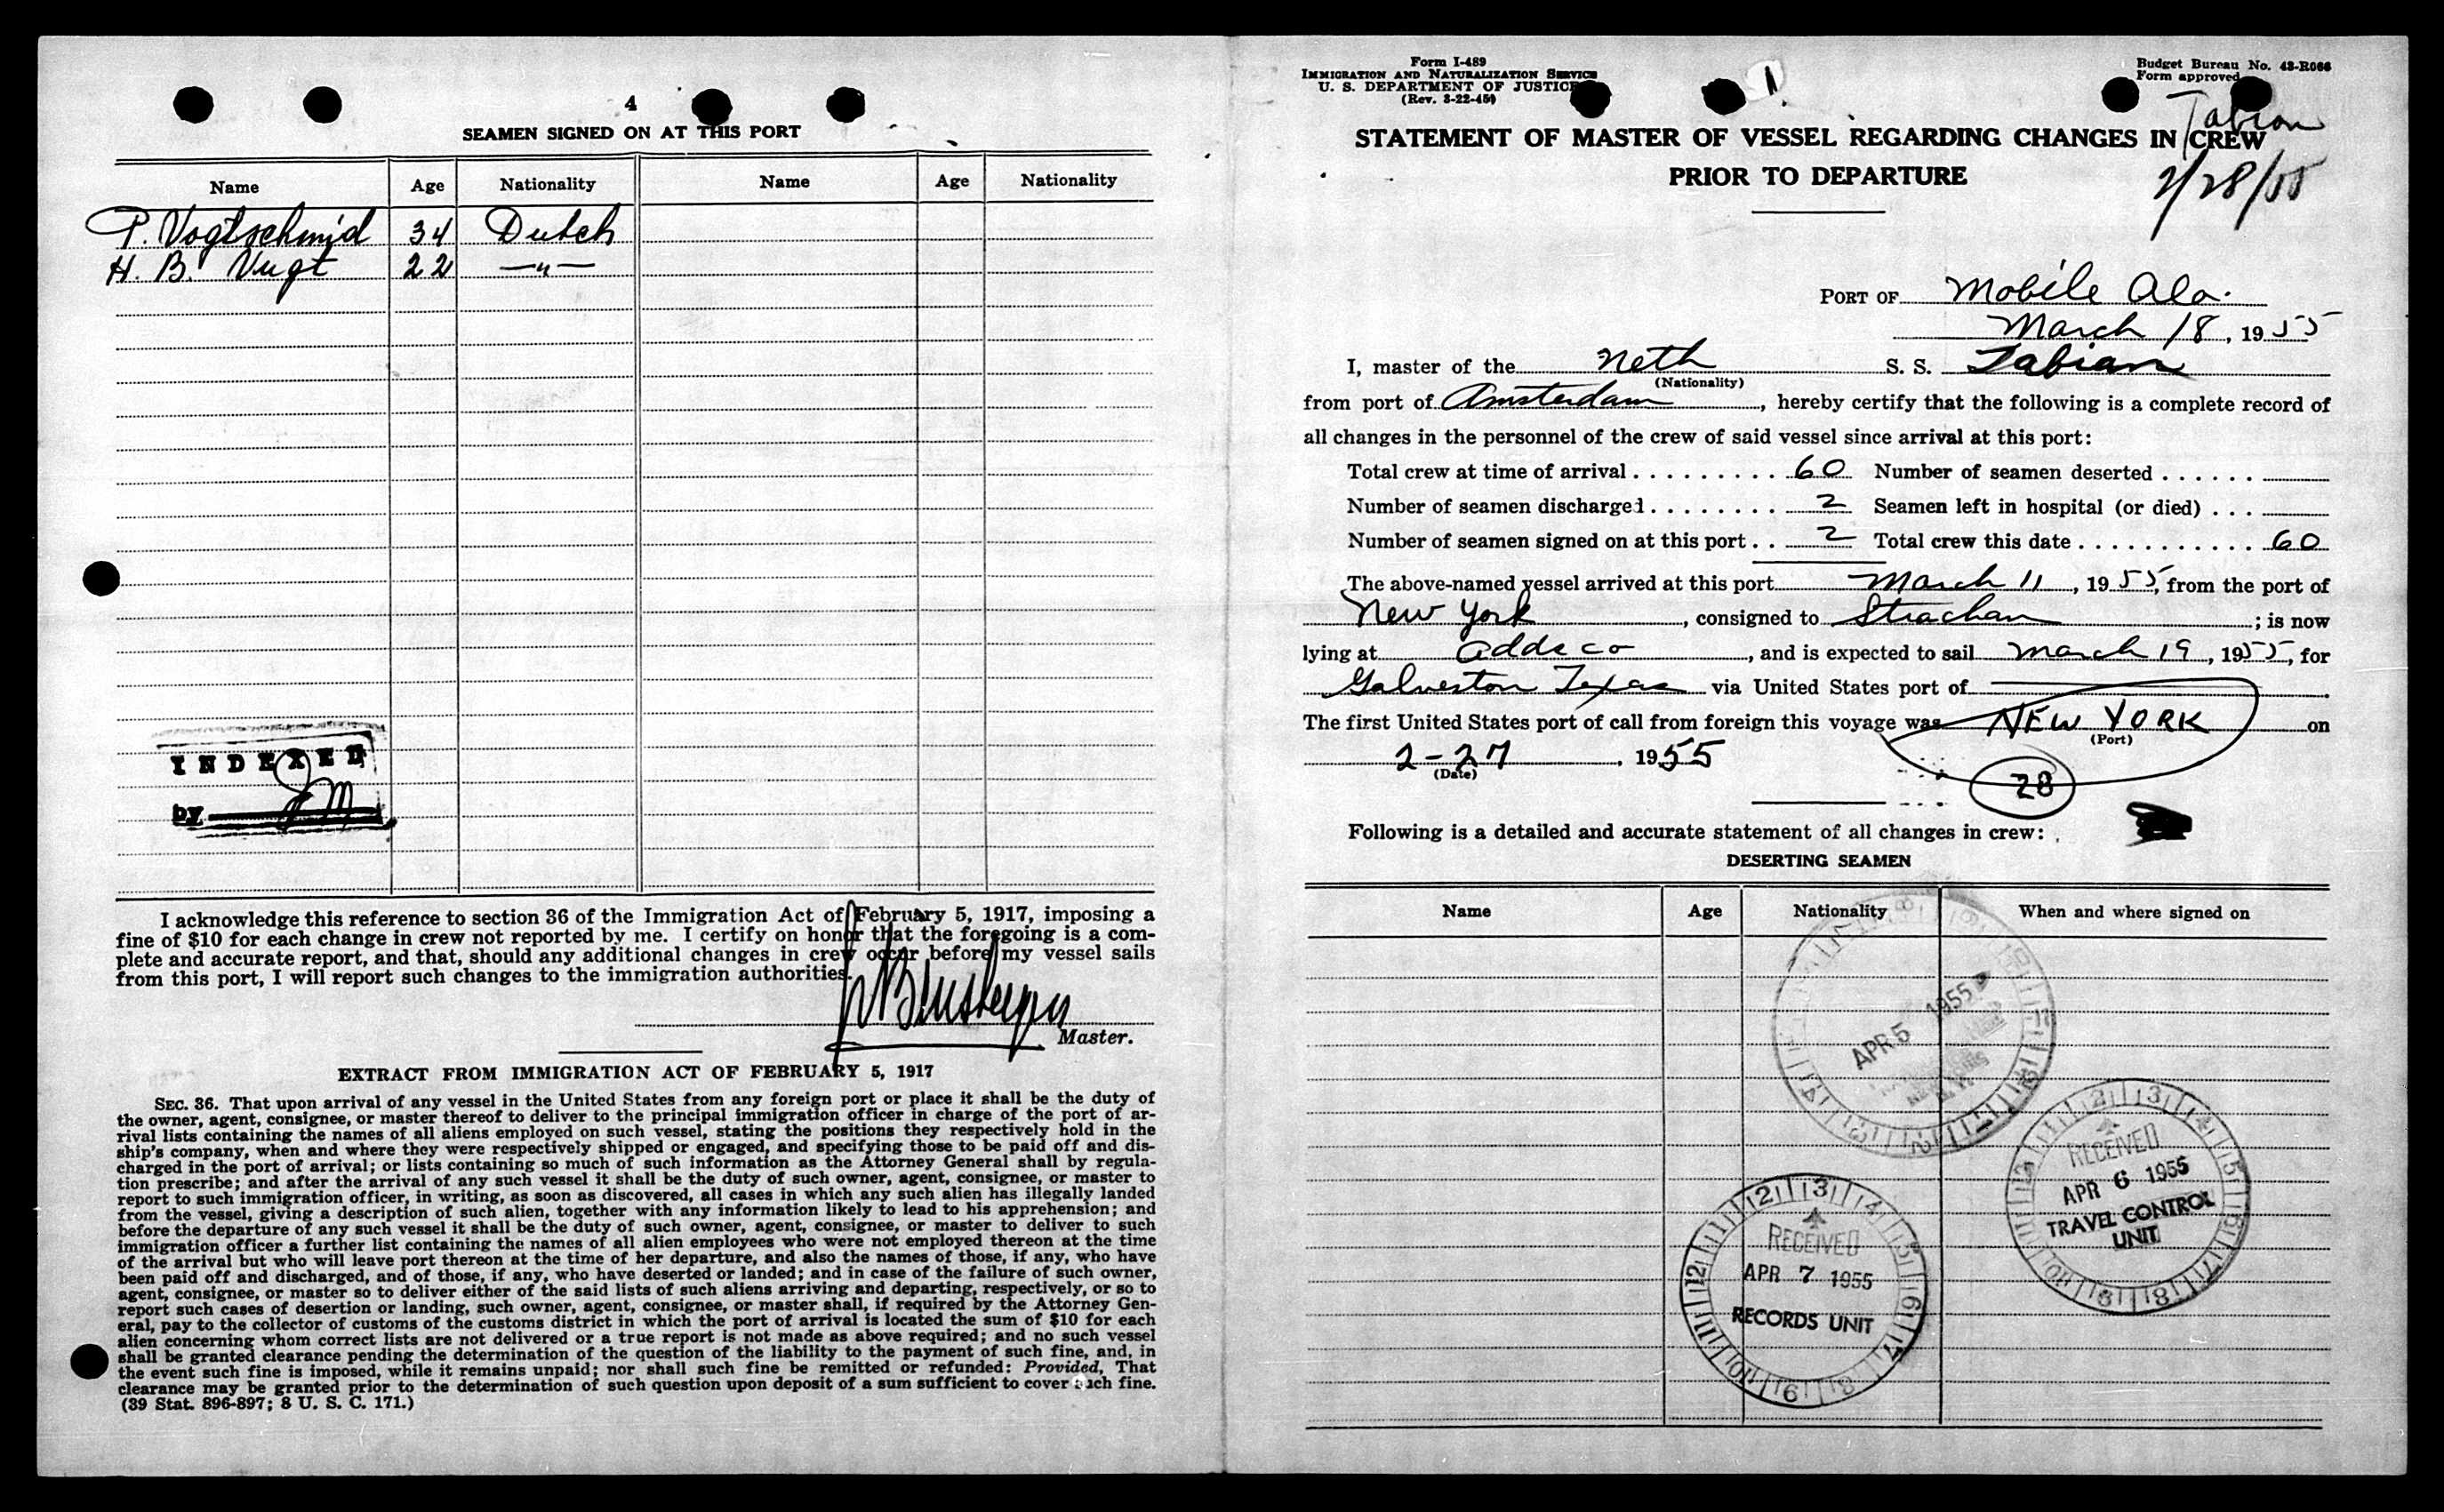 4
SEAMEN SIGNED ON AT THIS PORT
Name Age Nationality Name Age Nationality
P. Vogtschmid 34 Dutch
H. B. Vugt 22 —"—
INDEXED
by
I acknowledge this reference to section 36 of the Immigration Act of February 5, 1917, imposing a
fine of $10 for each change in crew not reported by me. I certify on honor that the foregoing is a com-
plete and accurate report, and that, should any additional changes in crew occur before my vessel sails
from this port, I will report such changes to the immigration authorities.
Master.
EXTRACT FROM IMMIGRATION ACT OF FEBRUARY 5, 1917
SEC. 36. That upon arrival of any vessel in the United States from any foreign port or place it shall be the duty of
the owner, agent, consignee, or master thereof to deliver to the principal immigration officer in charge of the port of ar-
rival lists containing the names of all aliens employed on such vessel, stating the positions they respectively hold in the
ship's company, when and where they were respectively shipped or engaged, and specifying those to be paid off and dis-
charged in the port of arrival; or lists containing so much of such information as the Attorney General shall by regula-
tion prescribe; and after the arrival of any such vessel it shall be the duty of such owner, agent, consignee, or master to
report to such immigration officer, in writing, as soon as discovered, all cases in which any such alien has illegally landed
from the vessel, giving a description of such alien, together with any information likely to lead to his apprehension; and
before the departure of any such vessel it shall be the duty of such owner, agent, consignee, or master to deliver to such
immigration officer a further list containing the names of all alien employees who were not employed thereon at the time
of the arrival but who will leave port thereon at the time of her departure, and also the names of those, if any, who have
been paid off and discharged, and of those, if any, who have deserted or landed; and in case of the failure of such owner,
agent, consignee, or master so to deliver either of the said lists of such aliens arriving and departing, respectively, or so to
report such cases of desertion or landing, such owner, agent, consignee, or master shall, if required by the Attorney Gen-
eral, pay to the collector of customs of the customs district in which the port of arrival is located the sum of $10 for each
alien concerning whom correct lists are not delivered or a true report is not made as above required; and no such vessel
shall be granted clearance pending the determination of the question of the liability to the payment of such fine, and, in
the event such fine is imposed, while it remains unpaid; nor shall such fine be remitted or refunded: Provided, That
clearance may be granted prior to the determination of such question upon deposit of a sum sufficient to cover such fine.
(39 Stat. 896-897; 8 U. S. C. 171.)
Form I-489
IMMIGRATION AND NATURALIZATION SERVICE
U. S. DEPARTMENT OF JUSTICE
(Rev. 3-22-45)
Budget Bureau No. 43-R066
Form approved
Tabian
STATEMENT OF MASTER OF VESSEL REGARDING CHANGES IN CREW
PRIOR TO DEPARTURE
2/28/55
PORT OF Mobile Ala.
March 18, 1955
I, master of the Neth S. S. Tabian
(Nationality)
from port of Amsterdam, hereby certify that the following is a complete record of
all changes in the personnel of the crew of said vessel since arrival at this port:
Total crew at time of arrival 60 Number of seamen deserted
Number of seamen discharged 2 Seamen left in hospital (or died)
Number of seamen signed on at this port 2 Total crew this date 60
The above-named vessel arrived at this port March 11, 1955, from the port of
New York, consigned to Strachan; is now
lying at Addsco, and is expected to sail March 19, 1955, for
Galveston Texas via United States port of
The first United States port of call from foreign this voyage was NEW YORK on
(Port)
2-27, 1955
(Date)
28
Following is a detailed and accurate statement of all changes in crew:
DESERTING SEAMEN
Name Age Nationality When and where signed on
APR 5 1955
RECEIVED
APR 6 1955
TRAVEL CONTROL
UNIT
RECEIVED
APR 7 1955
RECORDS UNIT